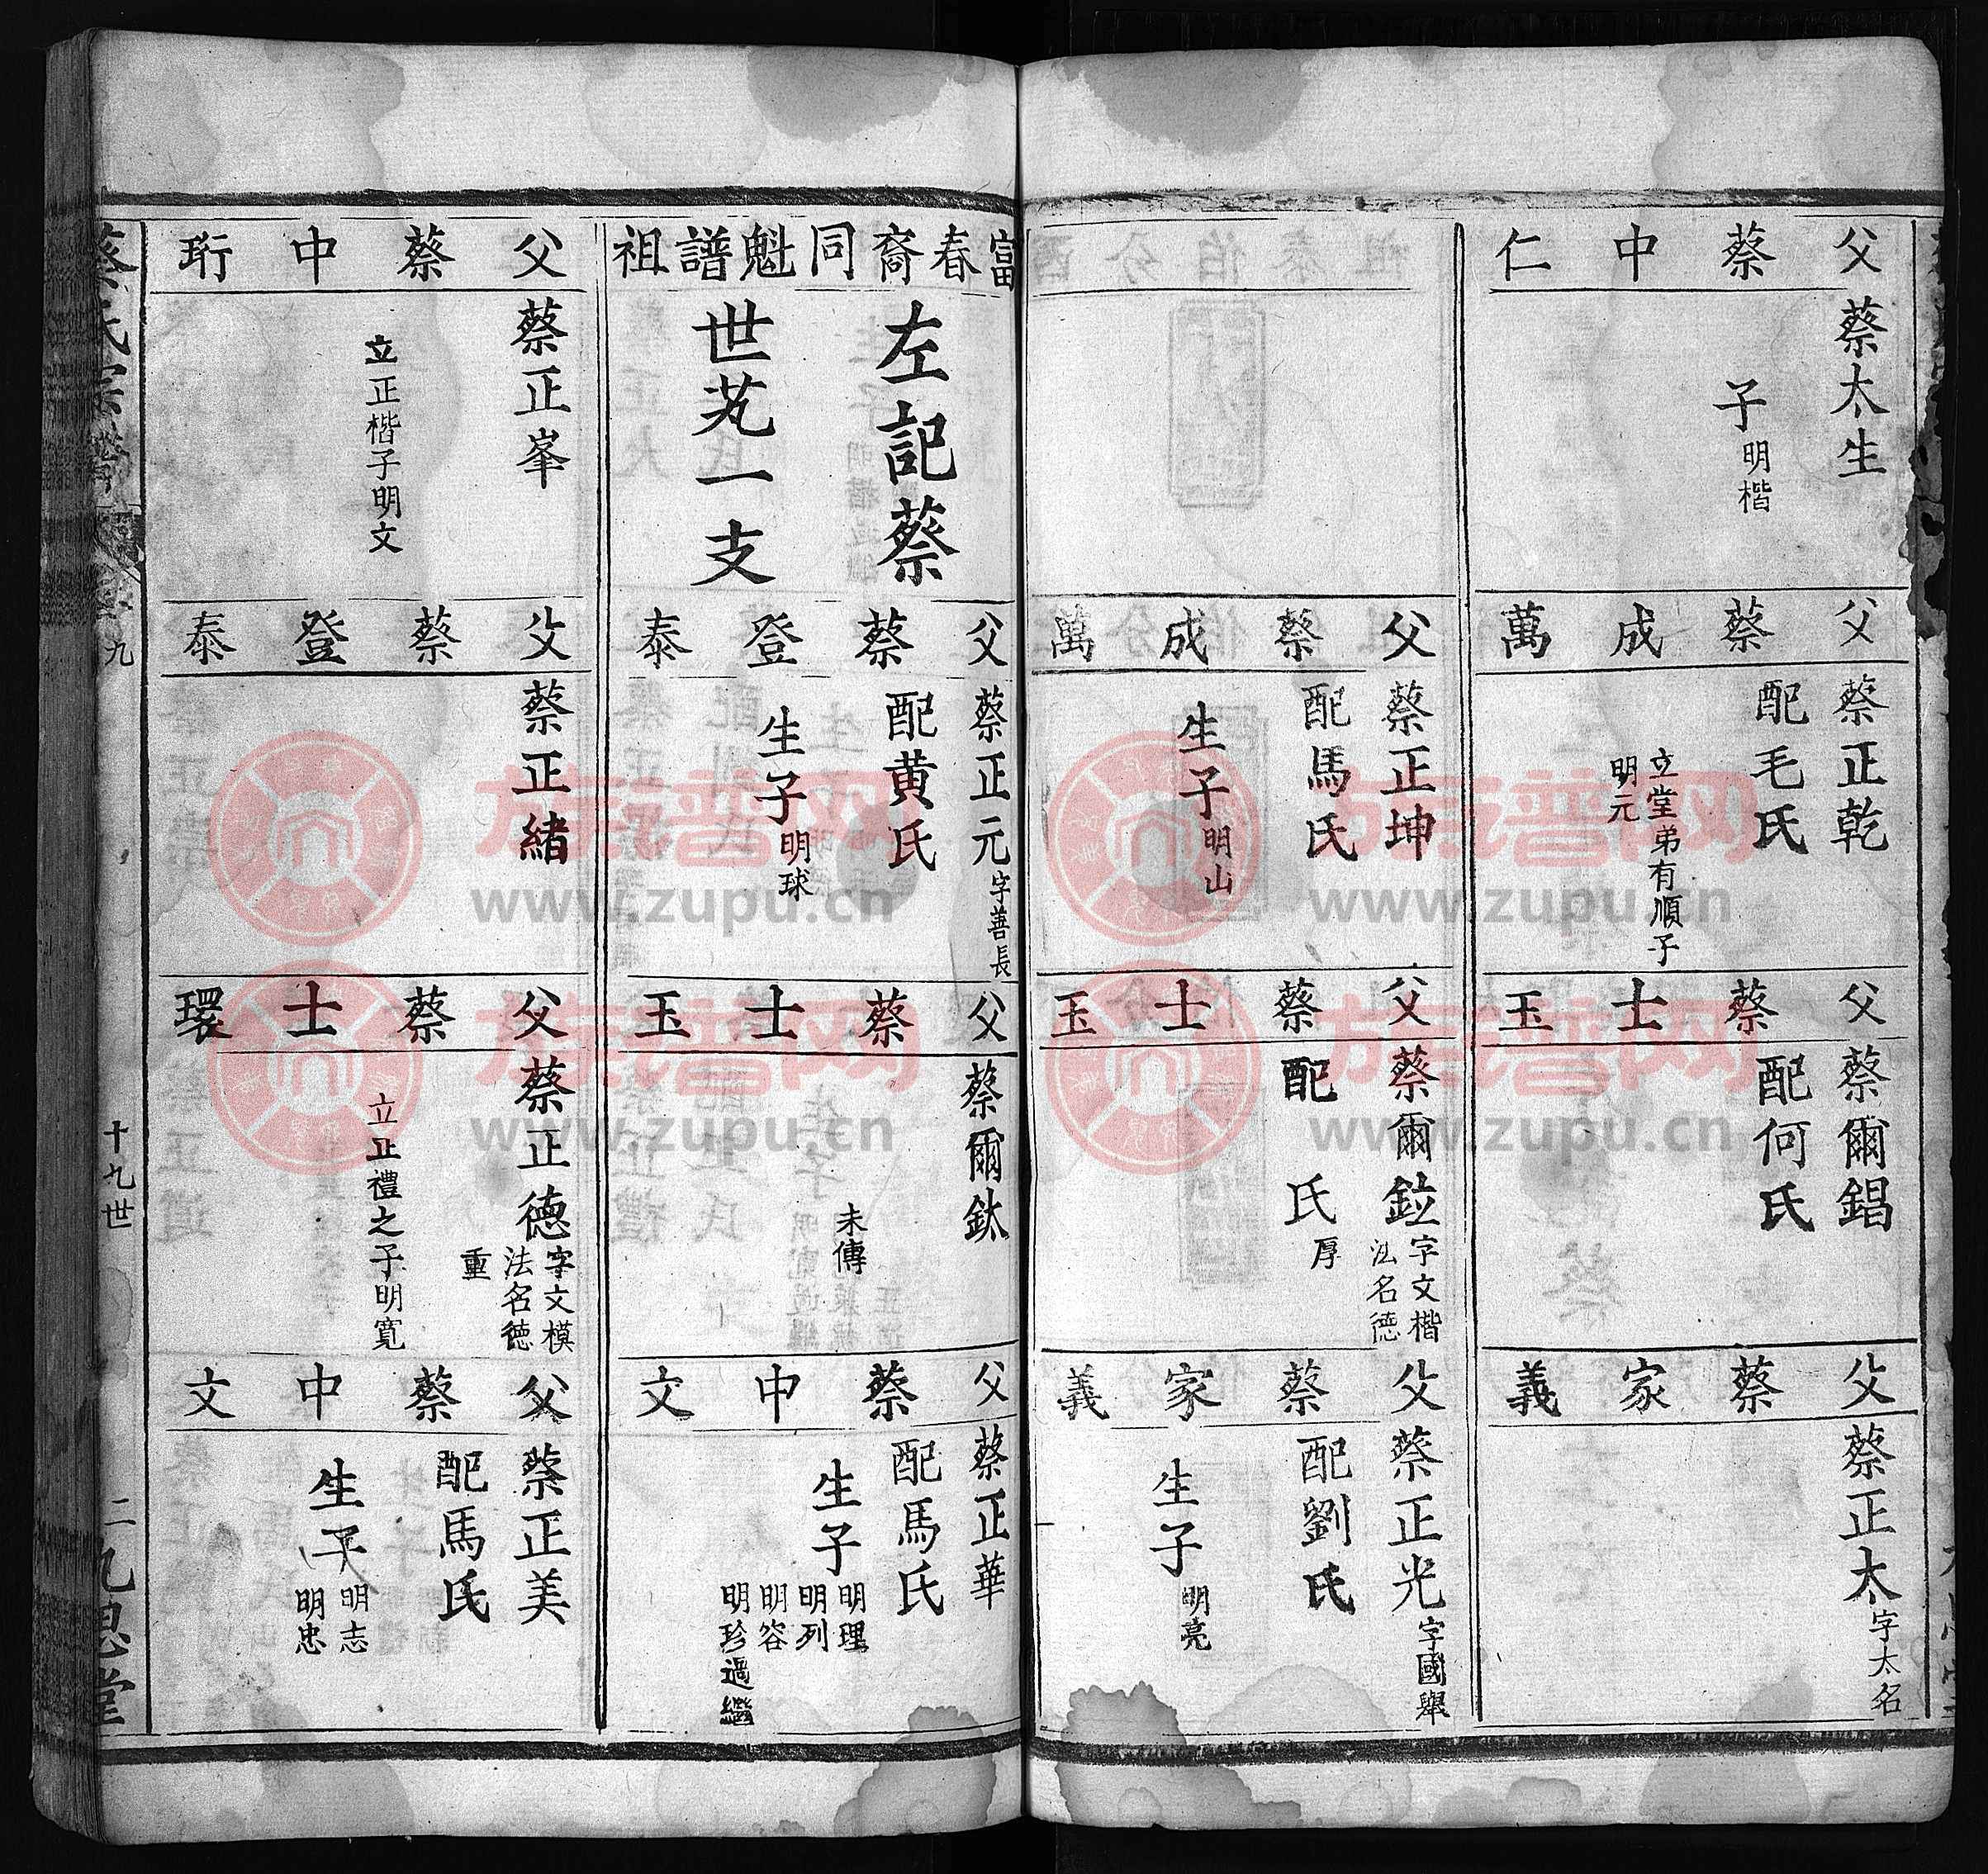 父蔡中仁
蔡太生
子明楷
父蔡成萬
蔡正乾
配毛氏
立堂弟有順子
明元
父蔡士玉
蔡爾錩
配何氏
父蔡家義
蔡正太字太名
父蔡成萬
蔡正坤
配馬氏
生子明山
父蔡士玉
蔡爾鉝字文楷
法名德
配 氏厚
父蔡家義
蔡正光字國舉
配劉氏
生子明亮
富春裔同魁譜祖
左記蔡
世芃一支
父蔡登泰
蔡正元字善長
配黄氏
生子明球
父蔡士玉
蔡爾鈦
未傳
父蔡中文
蔡正華
配馬氏
生子明理
明列
明容
明珍過繼
父蔡中珩
蔡正峯
立正楷子明文
父蔡登泰
蔡正緒
父蔡士環
蔡正德字文模
法名德
重
立正禮之子明寬
父蔡中文
蔡正美
配馬氏
生子明志
明忠
蔡氏宗譜
九
十九世
二九思堂
族譜网
www.zupu.cn
族譜网
www.zupu.cn
族譜网
www.zupu.cn
族譜网
www.zupu.cn